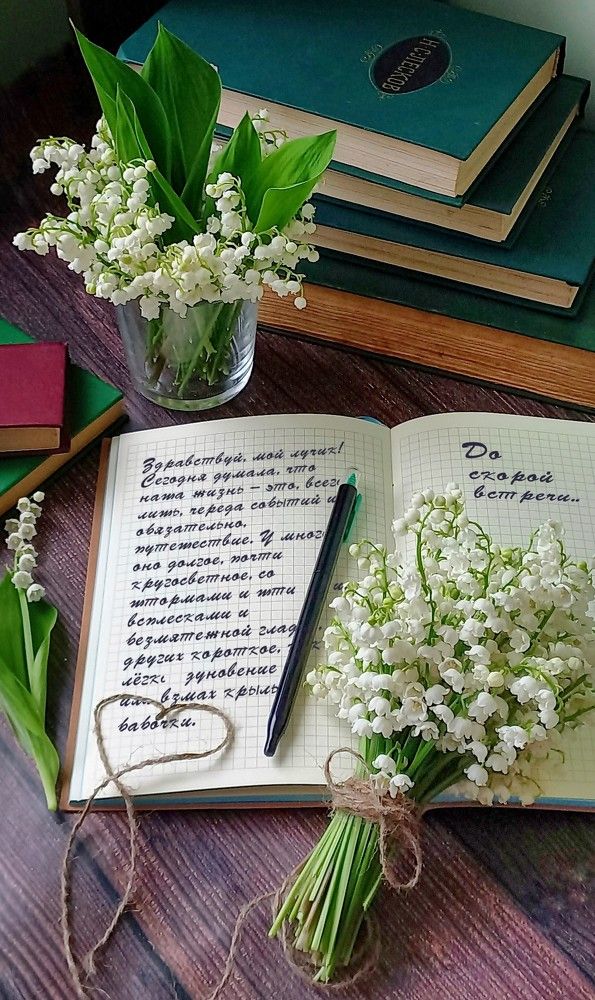 Н·С·ЛЕСКОВ
Здравствуй, мой лучик!
Сегодня думала, что
наша жизнь – это, всего
лишь, череда событий и
обязательно,
путешествие. У
оно долгое, почти
кругосветное, со
штормами и
всплесками и
безмятежной
других короткое,
дуновение
взмах
бабочки.
До
скорой
встречи..